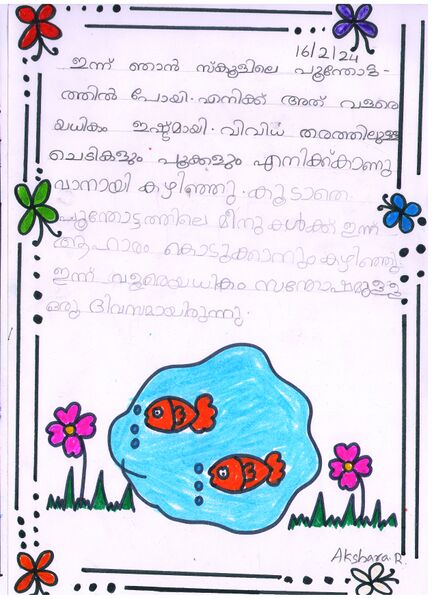 16/2/24
ഇന്ന് ഞാൻ സ്കൂളിലെ പൂന്തോട്ട-
ത്തിൽ പോയി. എനിക്ക് അത് വളരെ
യധികം ഇഷ്ടമായി. വിവിധ തരത്തിലുള്ള
ചെടികളും പൂക്കളും എനിക്ക് കാണു
വാനായി കഴിഞ്ഞു. കൂടാതെ
പൂന്തോട്ടത്തിലെ മീനുകൾക്ക് ഇന്ന്
ആഹാരം കൊടുക്കാനും കഴിഞ്ഞു.
ഇന്ന് വളരെയധികം സന്തോഷമുള്ള
ഒരു ദിവസമായിരുന്നു.
Akshara. R.